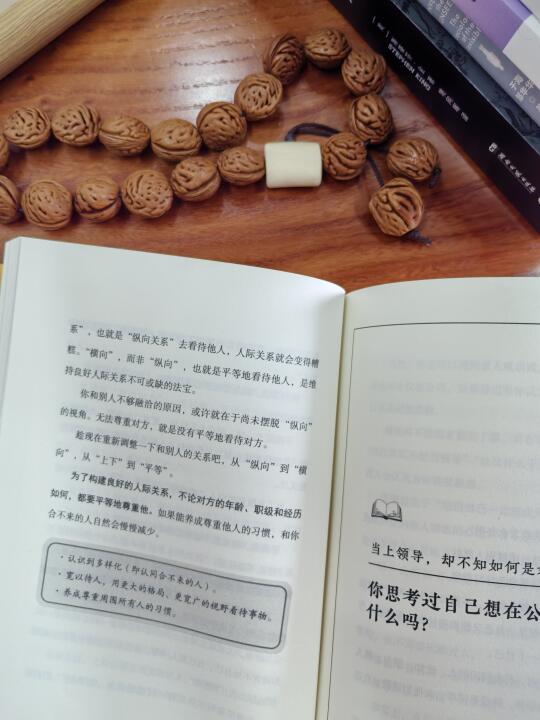 系”，也就是“纵向关系”去看待他人，人际关系就会变得糟
糕。“横向”，而非“纵向”，也就是平等地看待他人，是维
持良好人际关系不可或缺的法宝。
你和别人不够融洽的原因，或许就在于尚未摆脱“纵向”
的视角。无法尊重对方，就是没有平等地看待对方。
趁现在重新调整一下和别人的关系吧，从“纵向”到“横
向”，从“上下”到“平等”。
为了构建良好的人际关系，不论对方的年龄、职级和经历
如何，都要平等地尊重他。如果能养成尊重他人的习惯，和你
合不来的人自然会慢慢减少。
·认识到多样化（即认同合不来的人）。
·宽以待人，用更大的格局、更宽广的视野看待事物。
·养成尊重周围所有人的习惯。
当上领导，却不知如何是
你思考过自己想在公
什么吗？
STEPHEN KING